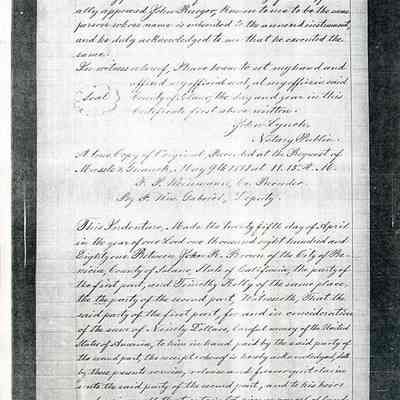 ally appeared John Rueger, known to me to be the same
person whose name is subscribed to the annexed instrument,
and he duly acknowledged to me that he executed the
same.
In witness whereof, I have hereunto set my hand and
affixed my official seal, at my office in said
Seal
County of Solano, the day and year in this
Certificate first above written.
John Lynch
Notary Public.
A true Copy of Original, Recorded at the Request of
May 9th 1881 at 11.15 A.M.
Co. Recorder
By Deputy.
This Indenture, Made the twenty fifth day of April
in the year of our Lord one thousand eight hundred and
Eighty one Between John R. Brown of the City of Be-
nicia, County of Solano, State of California, the party of
the first part, and Timothy Kelly of the same place,
the the party of the second part, Witnesseth, That the
said party of the first part, for and in consideration
of the sum of Ninety Dollars, lawful money of the United
States of America, to him in hand paid by the said party of
the second part, the receipt whereof is hereby acknowledged, doth
by these presents remise, release and forever quitclaim
unto the said party of the second part, and to his heirs